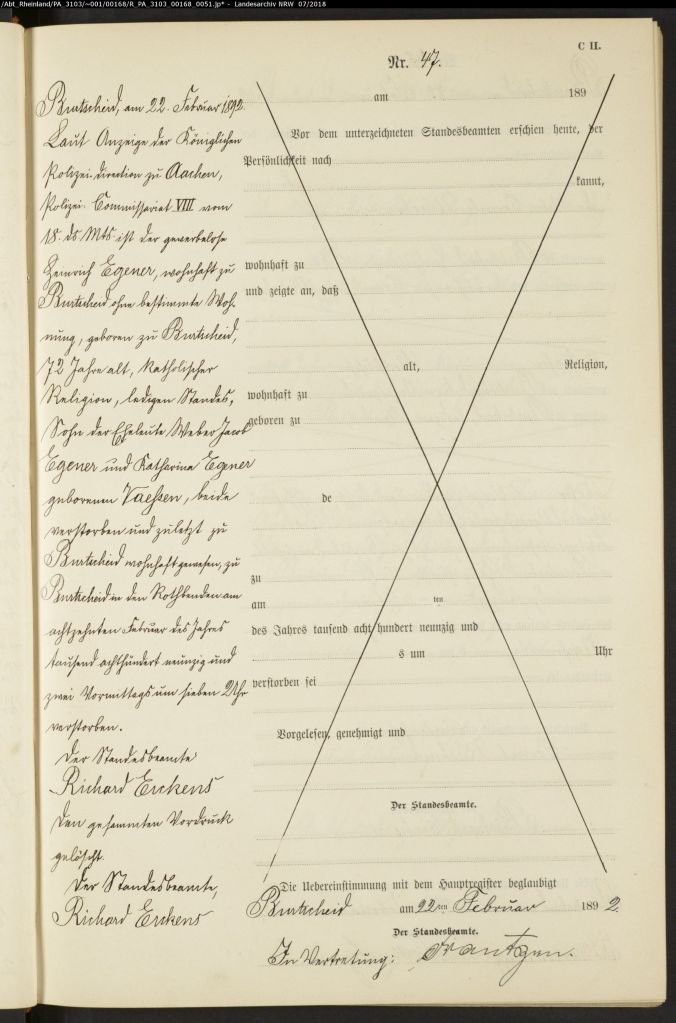 /Abt_Rheinland/PA_3103/~001/00168/R_PA_3103_00168_0051.jp* - Landesarchiv NRW 07/2018
C II.
Nr. 47.
Burtscheid, am 22. Februar 1892.
Laut Anzeige der Königlichen
Polizei-direction zu Aachen,
Polizei-Commissariat VIII vom
18. ds Mts ist der gewerbelose
Heinrich Egener, wohnhaft zu
Burtscheid ohne bestimmte Woh-
nung, geboren zu Burtscheid,
72 Jahre alt, katholischer
Religion, ledigen Standes,
Sohn der Eheleute Weber Jacob
Egener und Katharina Egener
geborenen Vaehsen, beide
verstorben und zuletzt zu
Burtscheid wohnhaft gewesen, zu
Burtscheid in den Rothbenden am
achtzehnten Februar des Jahres
tausend achthundert neunzig und
zwei Vormittags um sieben Uhr
verstorben.
Der Standesbeamte
Richard Erckens
Den gesammten Vordruck
gelöscht.
Der Standesbeamte,
Richard Erckens
am 189
Vor dem unterzeichneten Standesbeamten erschien heute, der
Persönlichkeit nach
kannt,
wohnhaft zu
und zeigte an, daß
alt, Religion,
wohnhaft zu
geboren zu
de
zu
am ten
des Jahres tausend acht hundert neunzig und
s um Uhr
verstorben sei
Vorgelesen, genehmigt und
Der Standesbeamte.
Die Uebereinstimmung mit dem Hauptregister beglaubigt
Burtscheid am 22ten Februar 1892.
Der Standesbeamte.
In Vertretung: Frantzen.